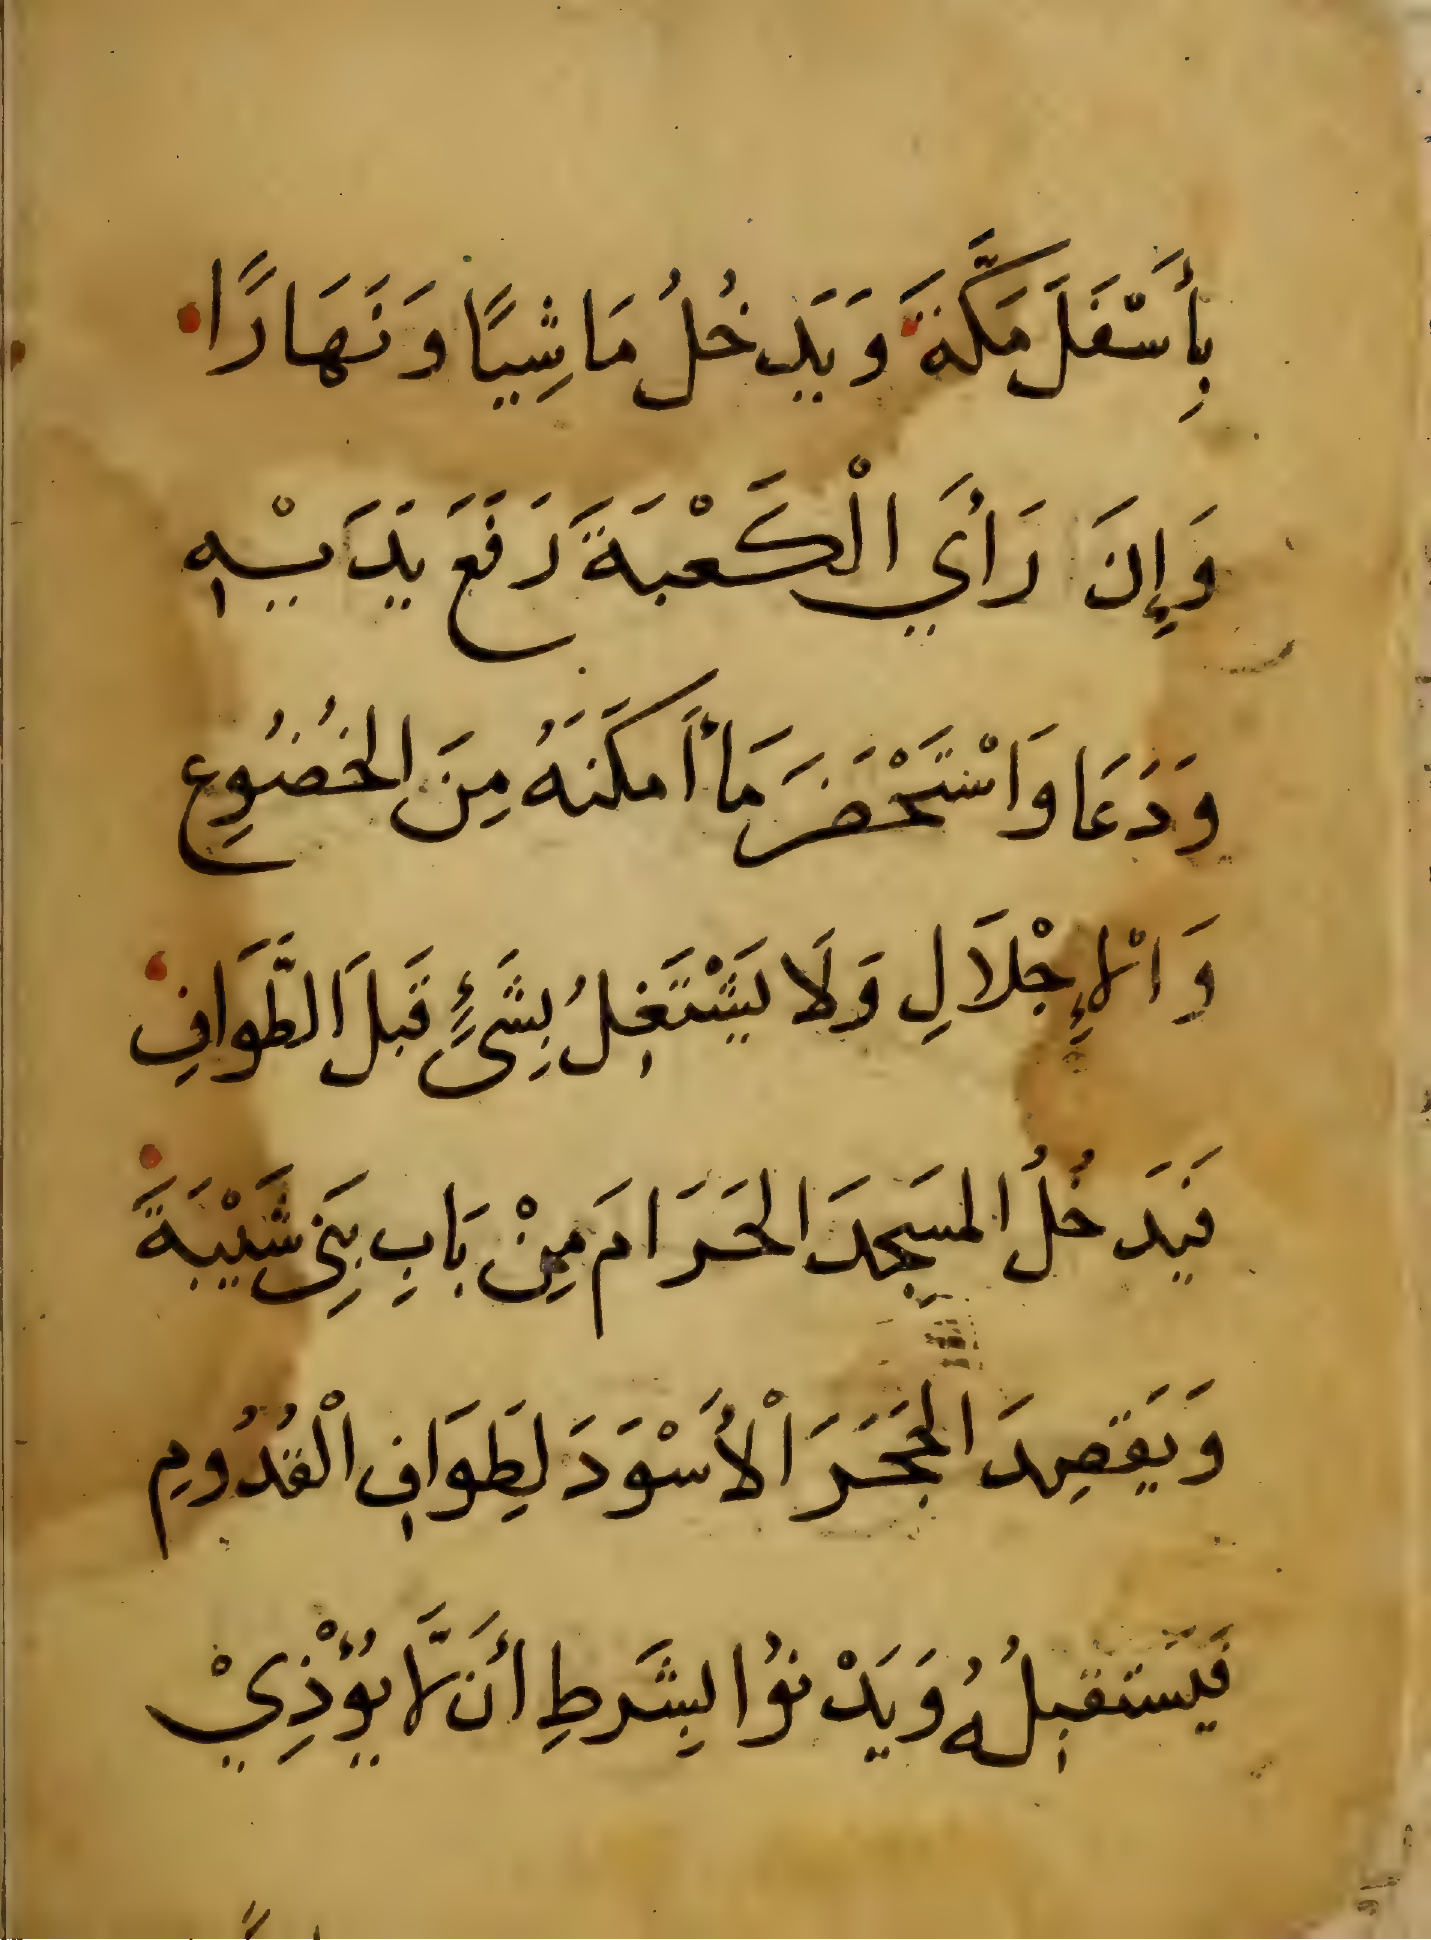 بِأَسْفَلَ مَكَّةَ وَيَدخُلُ مَاشِيًا وَنَهَارًا
وَإِنَ رَأَيَ الْكَعْبَةَ رَفَعَ يَدَيْهِ
وَدَعَا وَاسْتَحْضَرَ مَا أَمكَنَهُ مِنَ الخُضُوعِ
وَالْإِجْلَالِ وَلَا يَشْتَغِلُ بِشَيْءٍ قَبلَ الطَّوَافِ
فَيَدخُلُ المَسجِدَ الحَرَامَ مِنْ بَابِ بَنِي شَيْبَةَ
وَيَقصِدَ الحَجَرَ الْأَسْوَدَ لِطَوَافِ الْقُدُومِ
فَيَستَقبِلُهُ وَيَدْنُوا بِشَرطِ أَن لَّا يُؤْذِيْ